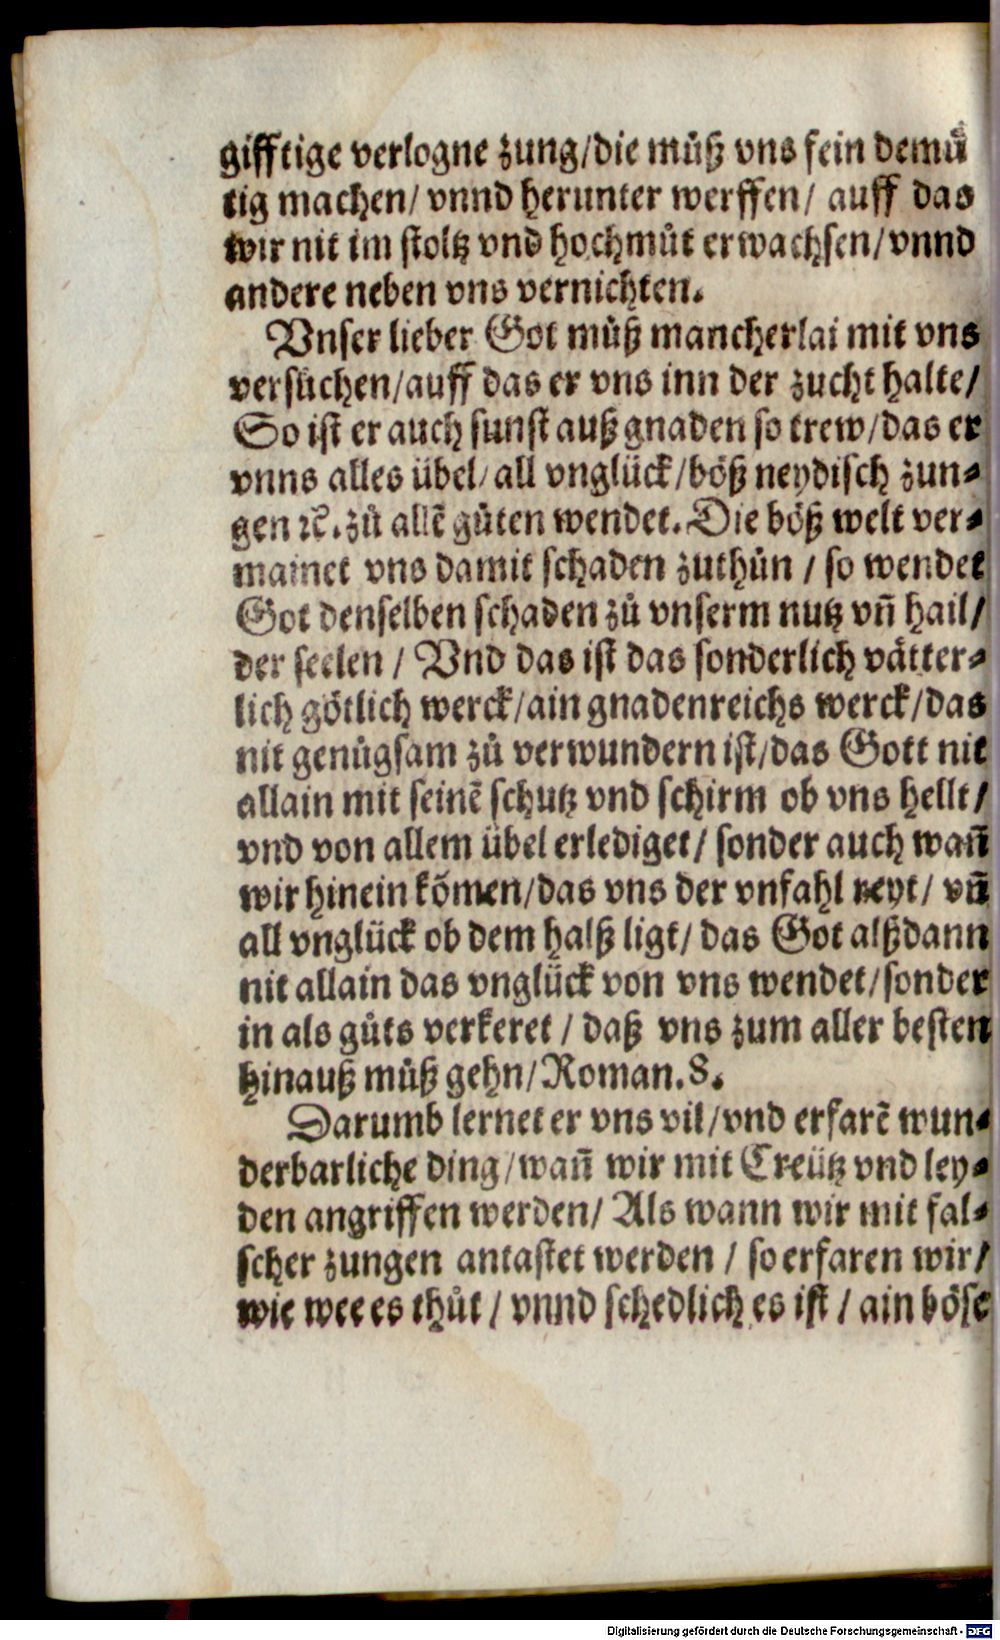 gifftige verlogne zung/die muͤß vns fein demuͤ
tig machen/ vnnd herunter werffen/ auff das
wir nit im stoltz vnd hochmuͤt erwachsen/vnnd
andere neben vns vernichten.
Vnser lieber Got muͤß mancherlai mit vns
versuͤchen/auff das er vns inn der zucht halte/
So ist er auch sunst auß gnaden so trew/das er
vnns alles übel/ all vnglück/böß neydisch zun⸗
gen ꝛc̃. zuͦ allẽ guͦten wendet. Die böß welt ver⸗
mainet vns damit schaden zuthuͦn / so wendet
Got denselben schaden zuͦ vnserm nutz vñ hail/
der seelen / Vnd das ist das sonderlich vätter⸗
lich götlich werck/ain gnadenreichs werck/das
nit genuͦgsam zuͦ verwundern ist/das Gott nit
allain mit seinẽ schutz vnd schirm ob vns hellt/
vnd von allem übel erlediget/ sonder auch wañ
wir hinein kõmen/das vns der vnfahl reyt/ vñ
all vnglück ob dem halß ligt/ das Got alßdann
nit allain das vnglück von vns wendet/sonder
in als guͦts verkeret / daß vns zum aller besten
hinauß muͤß gehn/Roman.8.
Darumb lernet er vns vil/vnd erfarẽ wun⸗
derbarliche ding/wañ wir mit Creütz vnd ley⸗
den angriffen werden/ Als wann wir mit fal⸗
scher zungen antastet werden / so erfaren wir/
wie wee es thuͦt / vnnd schedlich es ist / ain böse
Digitalisierung gefördert durch die Deutsche Forschungsgemeinschaft - DFG